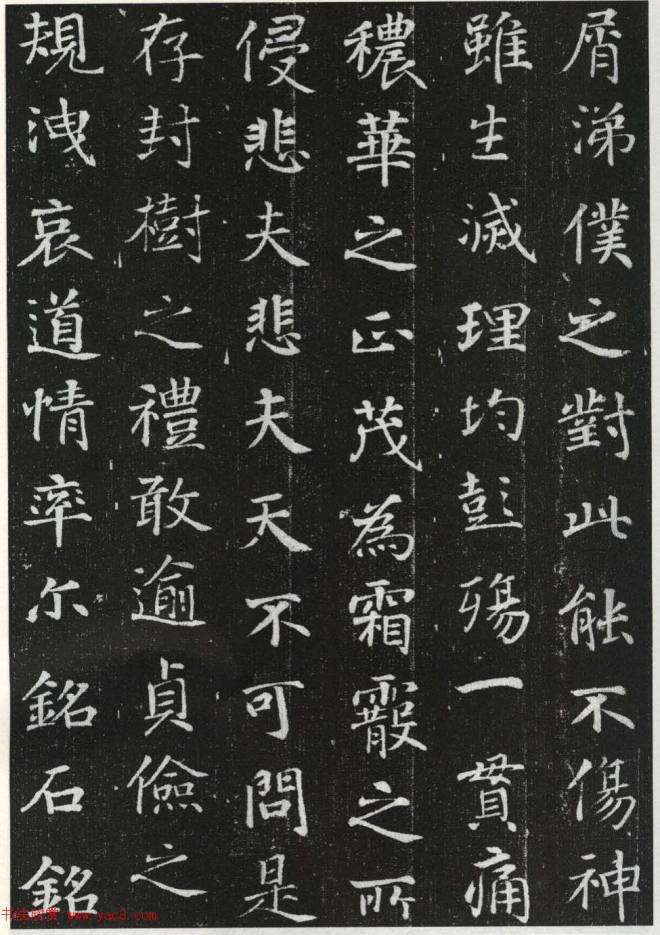 屑涕僕之對此能不傷神
雖生滅理均彭殤一貫痛
穠華之正茂為霜霰之所
侵悲夫悲夫天不可問是
存封樹之禮敢逾貞儉之
規洩哀道情率尒銘石銘
书法欣赏 www.yac8.com